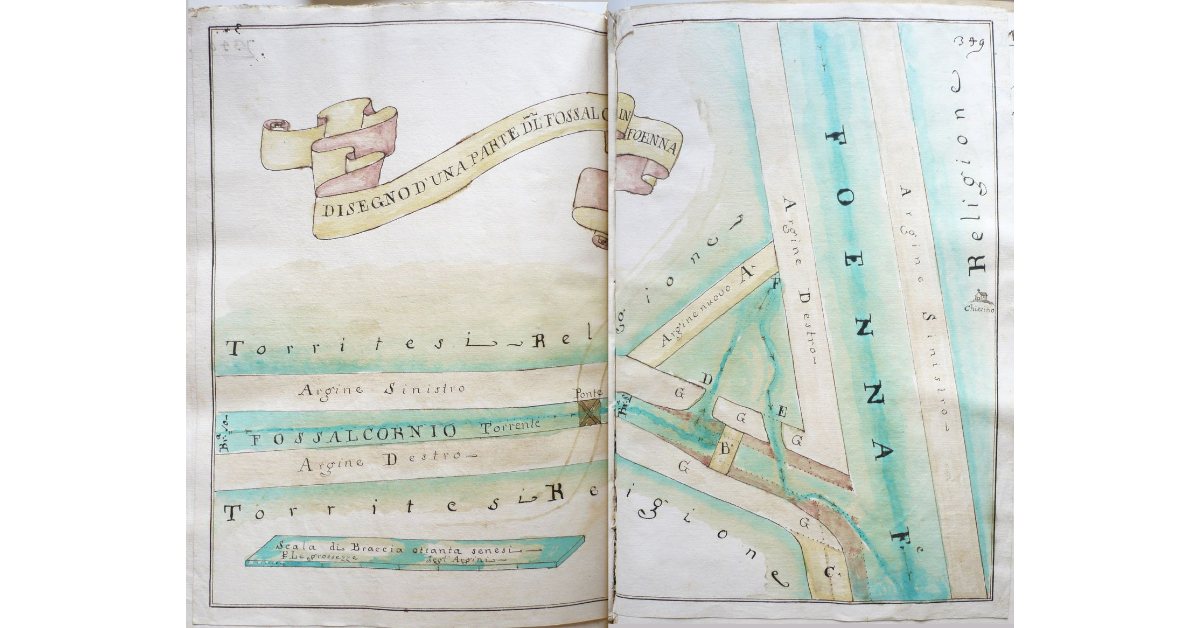 349
DISEGNO D'UNA PARTE DL FOSSALC IN FOENNA
Torritesi Religione
Argine Sinistro
Ponte
FOSSALCORNIO Torrente
Argine Destro
Torritesi Religione
Scala di Braccia ottanta senesi
P. Le grossezze degl'Argini
Argine nuovo A.
F
D
G
G
E
G
B.
G
G
C.
Argine Destro
FOENNA F.
Argine Sinistro
Religione
Chiesino